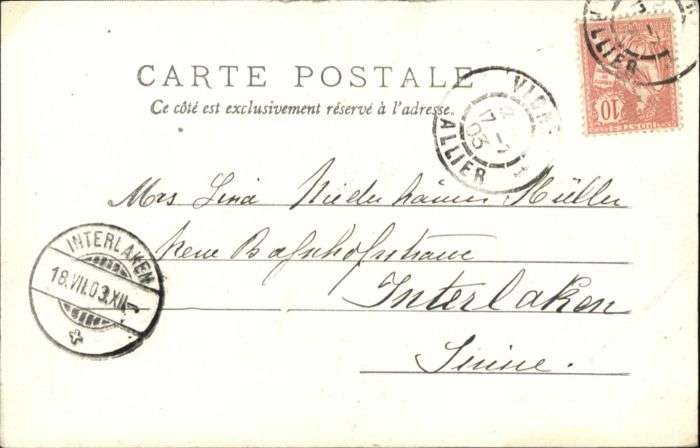 CARTE POSTALE
Ce côté est exclusivement réservé à l'adresse.
ALLIER
17 -7
03
ALLIER
10
Mrs Lina Müller
Neue Bahnhofstrasse
Interlaken
Suisse.
INTERLAKEN
18.VII.03.XII